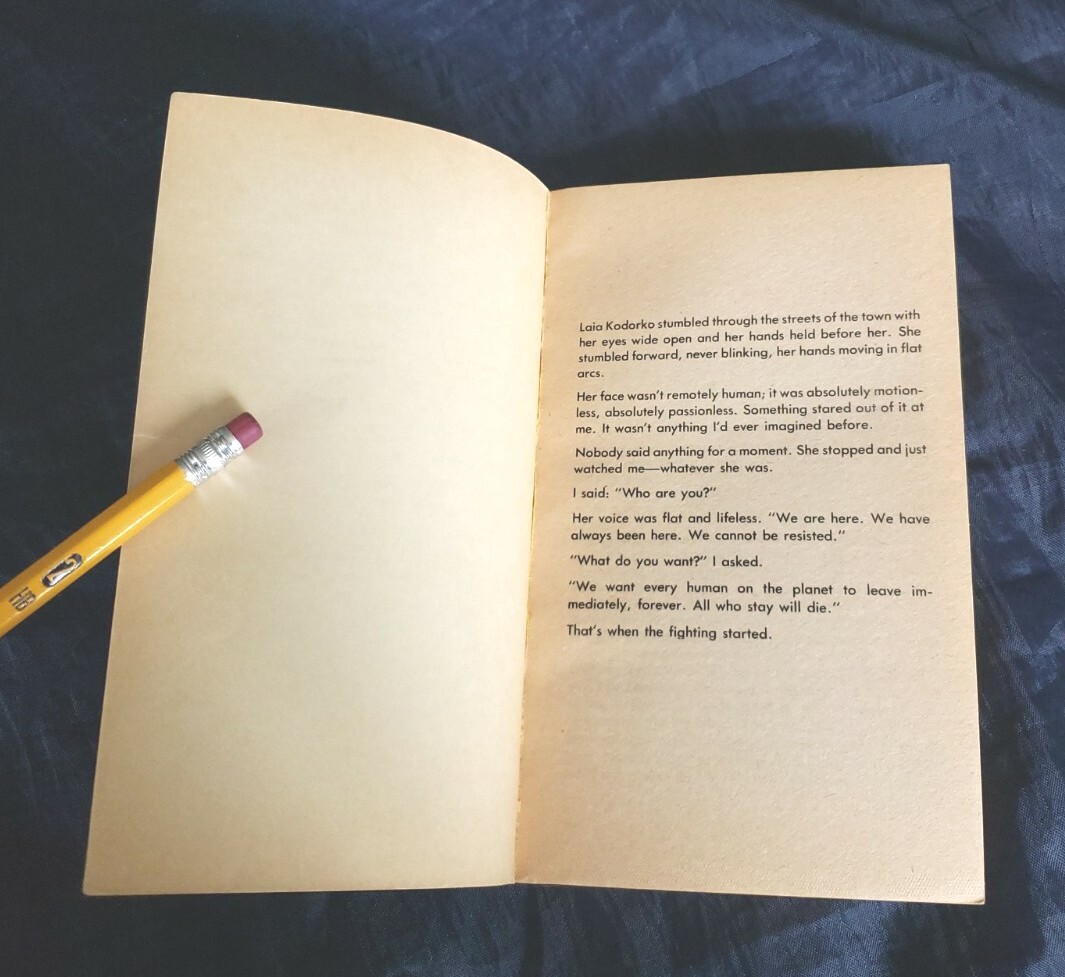 Laia Kodorko stumbled through the streets of the town with
her eyes wide open and her hands held before her. She
stumbled forward, never blinking, her hands moving in flat
arcs.
Her face wasn't remotely human; it was absolutely motion-
less, absolutely passionless. Something stared out of it at
me. It wasn't anything I'd ever imagined before.
Nobody said anything for a moment. She stopped and just
watched me—whatever she was.
I said: "Who are you?"
Her voice was flat and lifeless. "We are here. We have
always been here. We cannot be resisted."
"What do you want?" I asked.
"We want every human on the planet to leave im-
mediately, forever. All who stay will die."
That's when the fighting started.
2
HB